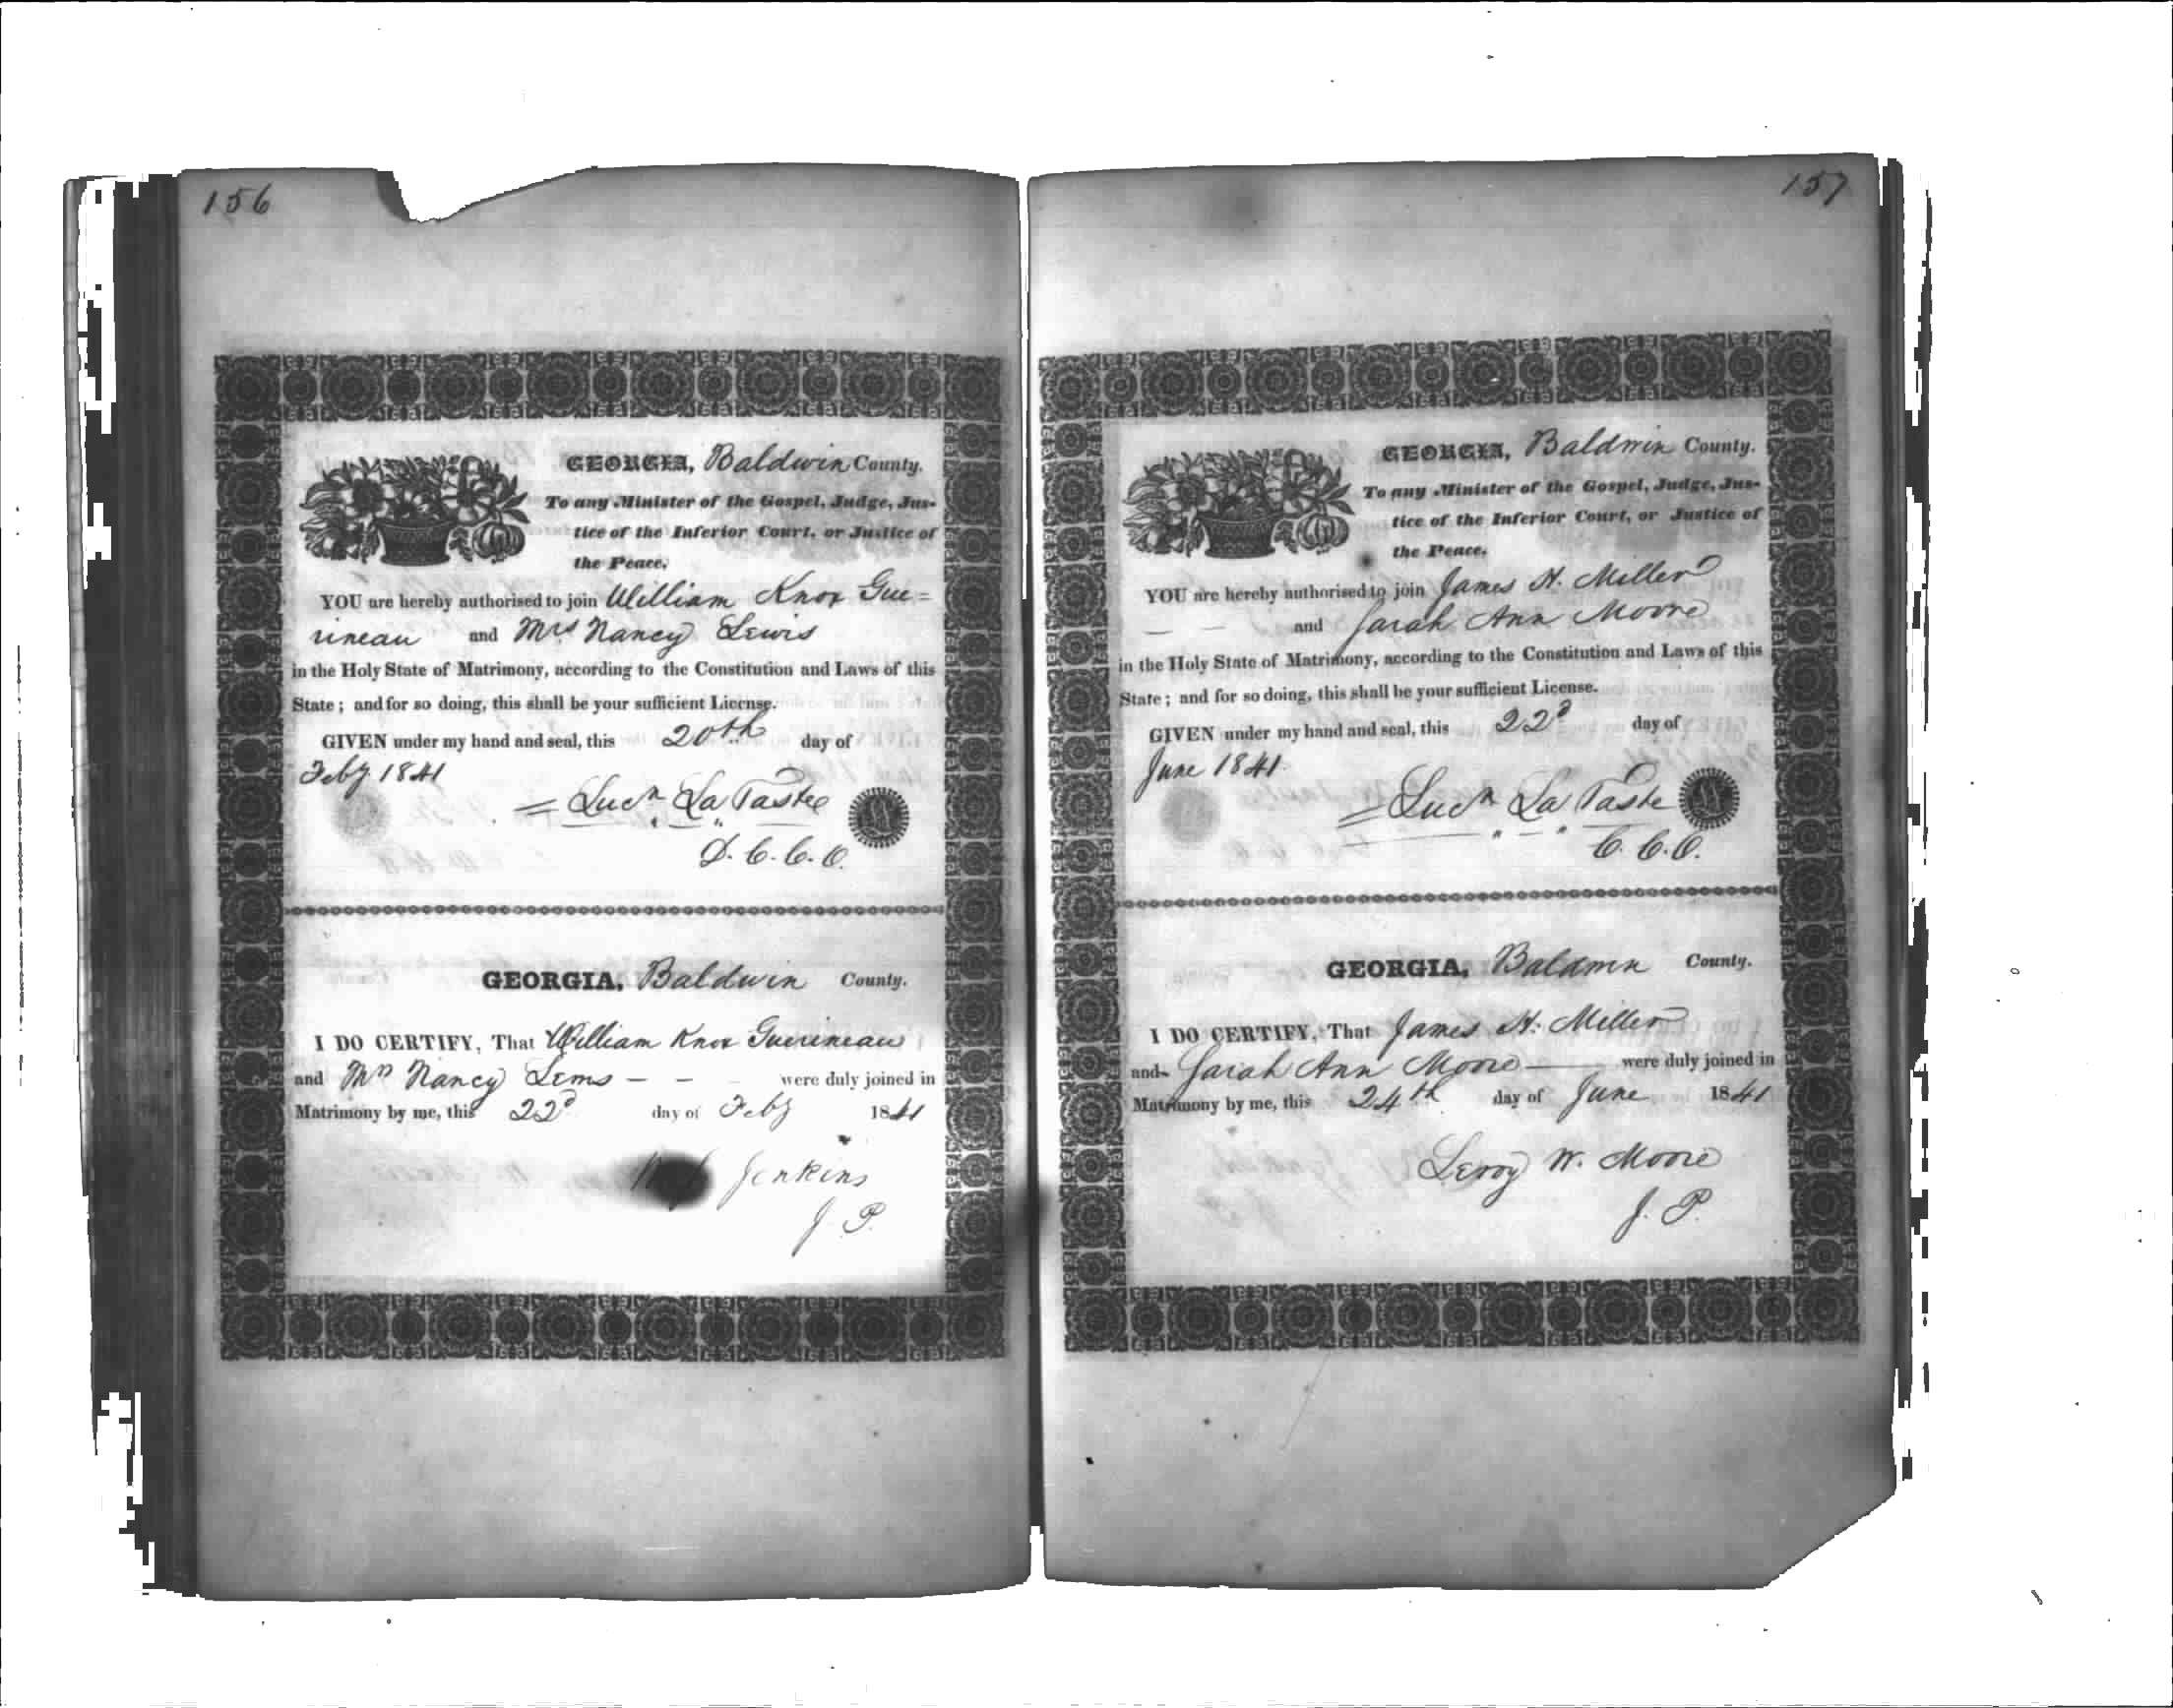 156
GEORGIA, Baldwin County.
To any Minister of the Gospel, Judge, Jus-
tice of the Inferior Court, or Justice of
the Peace.
YOU are hereby authorised to join William Knox Gue=
rineau and Mrs Nancy Lewis
in the Holy State of Matrimony, according to the Constitution and Laws of this
State; and for so doing, this shall be your sufficient License.
GIVEN under my hand and seal, this 20th day of
Feby 1841
Lucn La Taste
D. C. C. O.
GEORGIA, Baldwin County.
I DO CERTIFY, That William Knox Guerineau
and Mrs Nancy Lewis - - were duly joined in
Matrimony by me, this 22d day of Feby 1841
Jenkins
J. P.
157
GEORGIA, Baldwin County.
To any Minister of the Gospel, Judge, Jus-
tice of the Inferior Court, or Justice of
the Peace.
YOU are hereby authorised to join James H. Miller
— — and Sarah Ann Moore
in the Holy State of Matrimony, according to the Constitution and Laws of this
State; and for so doing, this shall be your sufficient License.
GIVEN under my hand and seal, this 22d day of
June 1841.
Lucn La Taste
C. C. O.
GEORGIA, Baldwin County.
I DO CERTIFY, That James H. Miller
and Sarah Ann Moore — were duly joined in
Matrimony by me, this 24th day of June 1841
Leroy W. Moore
J. P.